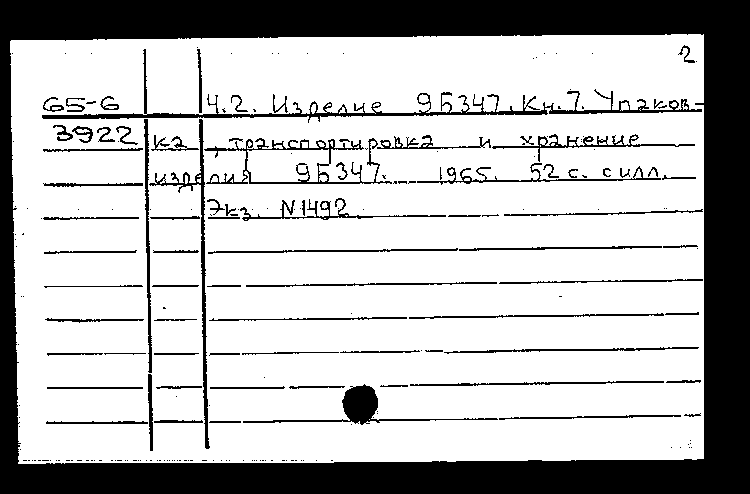 2
65-6 Ч.2. Изделие 9Б347. Кн.7. Упаков-
3922 ка, транспортировка и хранение
изделия 9Б347. 1965. 52 с. с илл.
Экз. N1492.